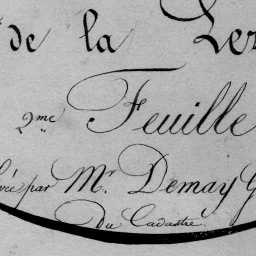 de la
2me Feuille
par Mr. Demay G
Du Cadastre.